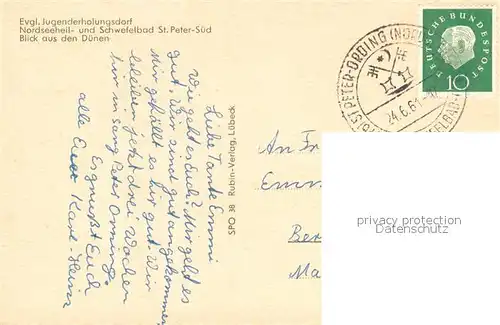 Evgl. Jugenderholungsdorf
Nordseeheil- und Schwefelbad St. Peter-Süd
Blick aus den Dünen
Liebe Tante Emmi
Wie geht es Euch? Mir geht es
gut. Wir sind gut angekommen
Mir gefällt es hir gut. Wir
bleiben jetzt drei Wochen
hir in sang Peter Ording.
Es grüßt Euch
alle Euer Karl-Heinz
SPO 38 Rubin-Verlag, Lübeck
ST. PETER-ORDING (NOR
24.6.61
DEUTSCHE BUNDESPOST
10
An Fr
Emm
Ber
Ma
privacy protection
oldthing.com